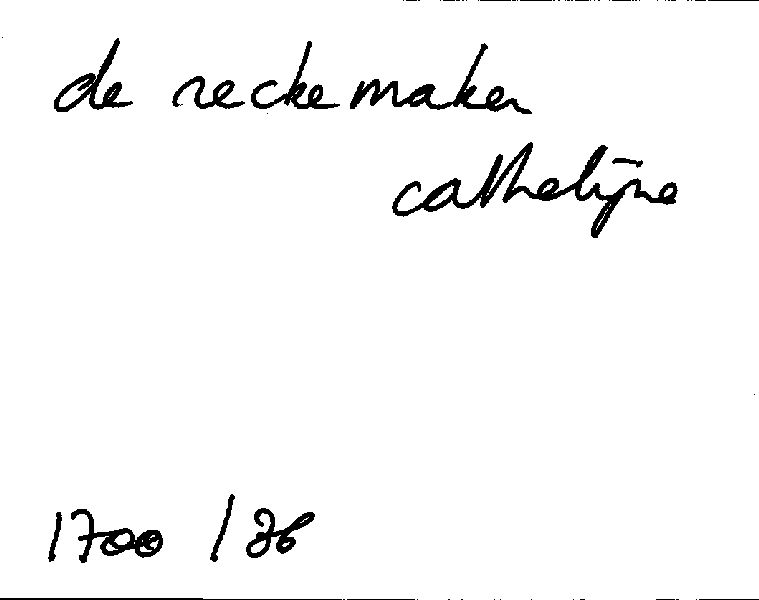 de reckemaker
cathelijne
1700 / 36